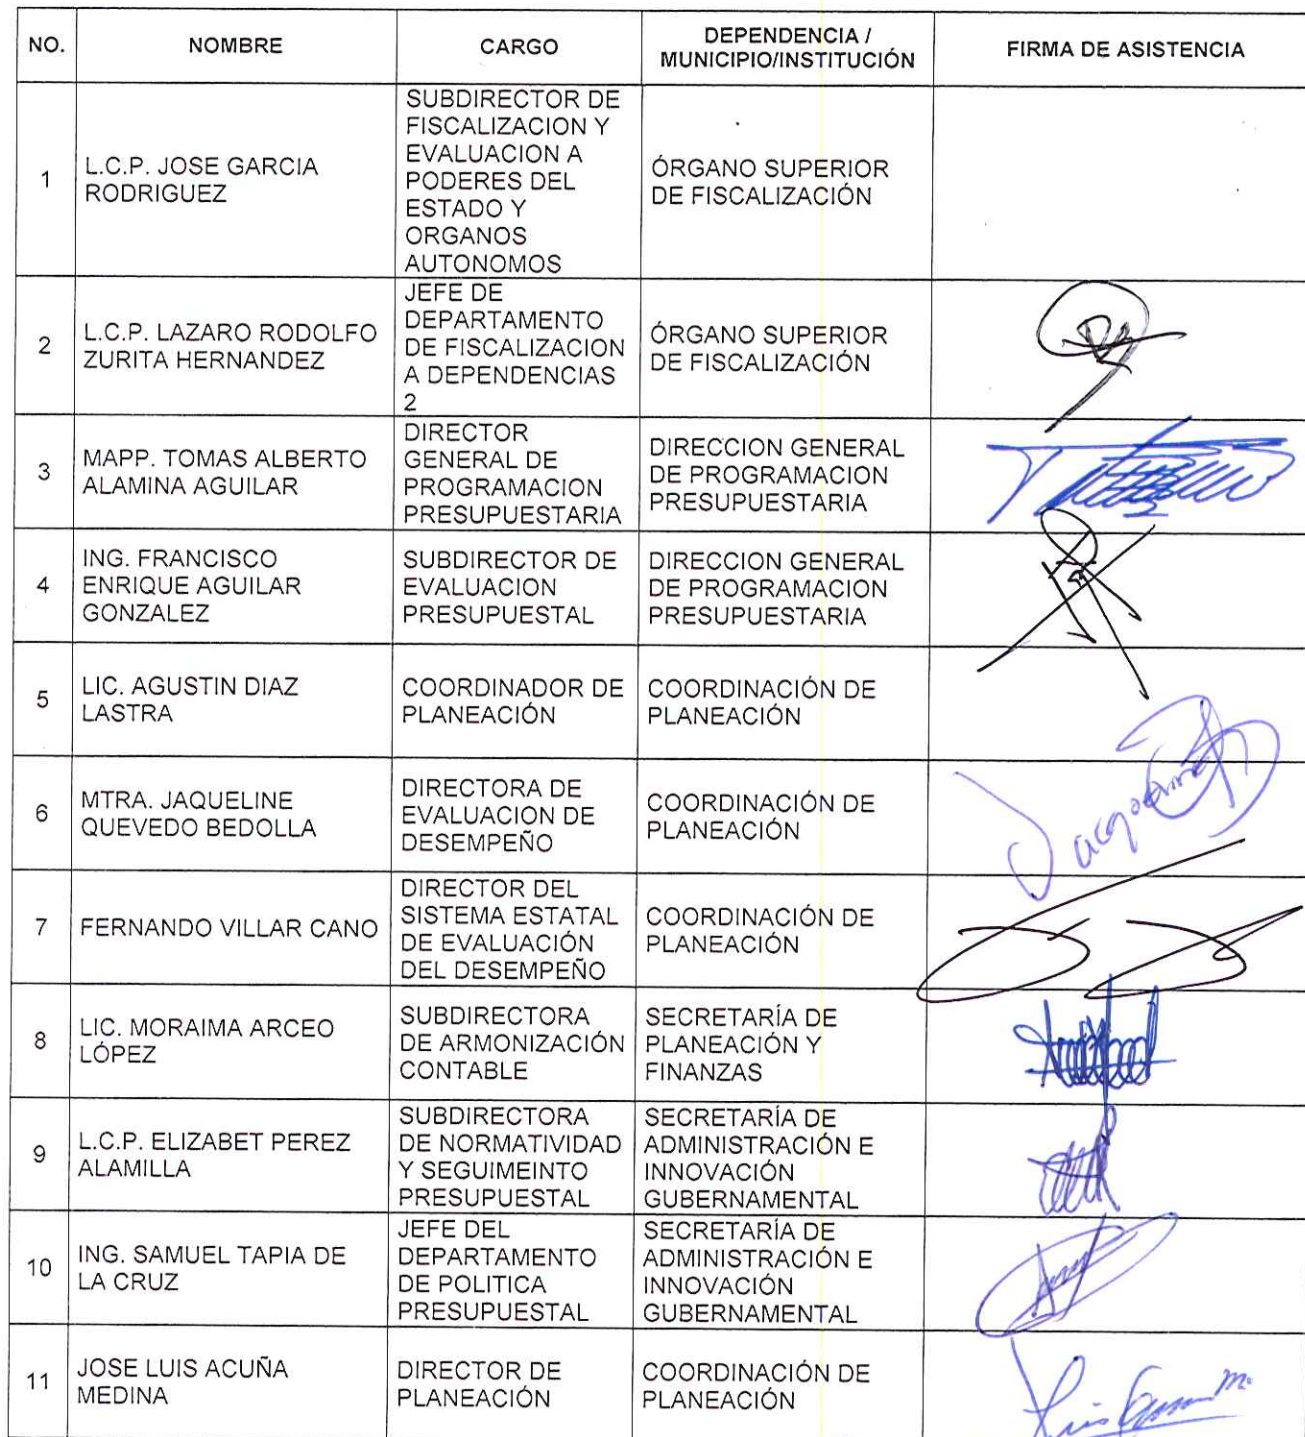 NO.
NOMBRE
CARGO
DEPENDENCIA /
MUNICIPIO/INSTITUCIÓN
FIRMA DE ASISTENCIA
1
L.C.P. JOSE GARCIA
RODRIGUEZ
SUBDIRECTOR DE
FISCALIZACION Y
EVALUACION A
PODERES DEL
ESTADO Y
ORGANOS
AUTONOMOS
ÓRGANO SUPERIOR
DE FISCALIZACIÓN
2
L.C.P. LAZARO RODOLFO
ZURITA HERNANDEZ
JEFE DE
DEPARTAMENTO
DE FISCALIZACION
A DEPENDENCIAS
2
ÓRGANO SUPERIOR
DE FISCALIZACIÓN
3
MAPP. TOMAS ALBERTO
ALAMINA AGUILAR
DIRECTOR
GENERAL DE
PROGRAMACION
PRESUPUESTARIA
DIRECCION GENERAL
DE PROGRAMACION
PRESUPUESTARIA
4
ING. FRANCISCO
ENRIQUE AGUILAR
GONZALEZ
SUBDIRECTOR DE
EVALUACION
PRESUPUESTAL
DIRECCION GENERAL
DE PROGRAMACION
PRESUPUESTARIA
5
LIC. AGUSTIN DIAZ
LASTRA
COORDINADOR DE
PLANEACIÓN
COORDINACIÓN DE
PLANEACIÓN
6
MTRA. JAQUELINE
QUEVEDO BEDOLLA
DIRECTORA DE
EVALUACION DE
DESEMPEÑO
COORDINACIÓN DE
PLANEACIÓN
7
FERNANDO VILLAR CANO
DIRECTOR DEL
SISTEMA ESTATAL
DE EVALUACIÓN
DEL DESEMPEÑO
COORDINACIÓN DE
PLANEACIÓN
8
LIC. MORAIMA ARCEO
LÓPEZ
SUBDIRECTORA
DE ARMONIZACIÓN
CONTABLE
SECRETARÍA DE
PLANEACIÓN Y
FINANZAS
9
L.C.P. ELIZABET PEREZ
ALAMILLA
SUBDIRECTORA
DE NORMATIVIDAD
Y SEGUIMEINTO
PRESUPUESTAL
SECRETARÍA DE
ADMINISTRACIÓN E
INNOVACIÓN
GUBERNAMENTAL
10
ING. SAMUEL TAPIA DE
LA CRUZ
JEFE DEL
DEPARTAMENTO
DE POLITICA
PRESUPUESTAL
SECRETARÍA DE
ADMINISTRACIÓN E
INNOVACIÓN
GUBERNAMENTAL
11
JOSE LUIS ACUÑA
MEDINA
DIRECTOR DE
PLANEACIÓN
COORDINACIÓN DE
PLANEACIÓN